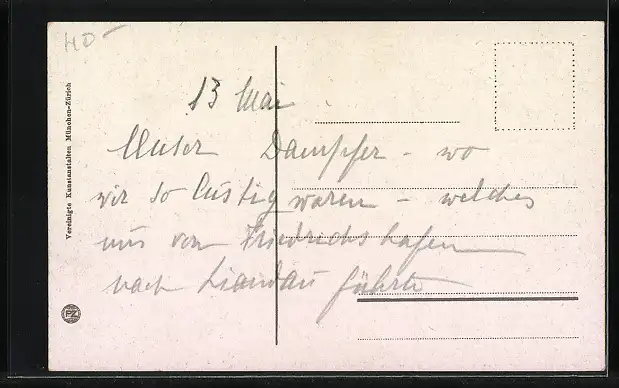 40 -
13 Mai
Unser Dampfer - wo
wir so lustig waren - welches
uns von Friedrichshafen
nach Liandau führte
Vereinigte Kunstanstalten München-Zürich
PZ